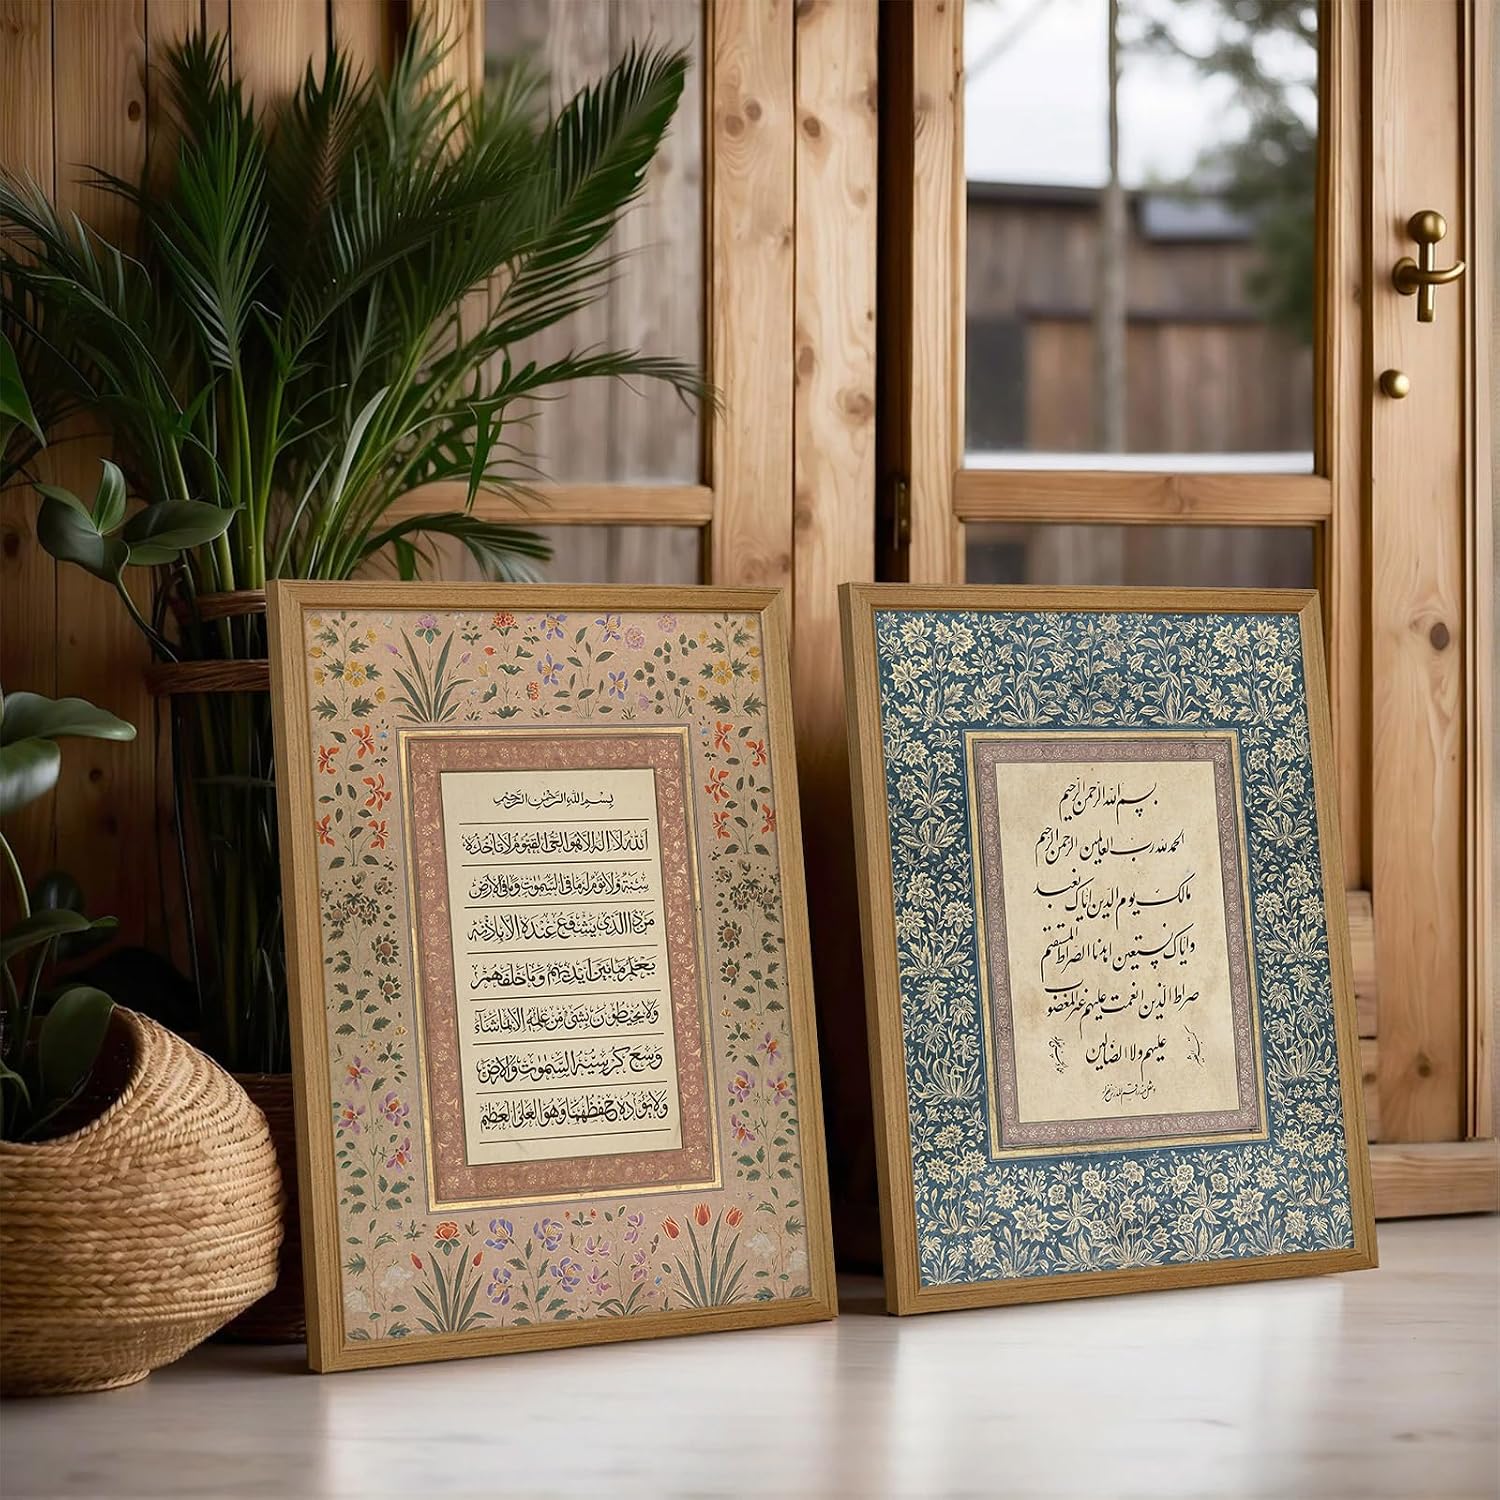 بسم الله الرحمن الرحيم
الله لا اله الا هو الحي القيوم لا تأخذه
سنة ولا نوم له ما في السموت وما في الارض
من ذا الذي يشفع عنده الا باذنه
يعلم ما بين ايديهم وما خلفهم
ولا يحيطون بشئ من علمه الا بما شاء
وسع كرسيه السموت والارض
ولا يؤده حفظهما وهو العلي العظيم
بسم الله الرحمن الرحيم
الحمد لله رب العالمين الرحمن الرحيم
مالك يوم الدين اياك نعبد
واياك نستعين اهدنا الصراط المستقيم
صراط الذين انعمت عليهم غير المغضوب
عليهم ولا الضالين